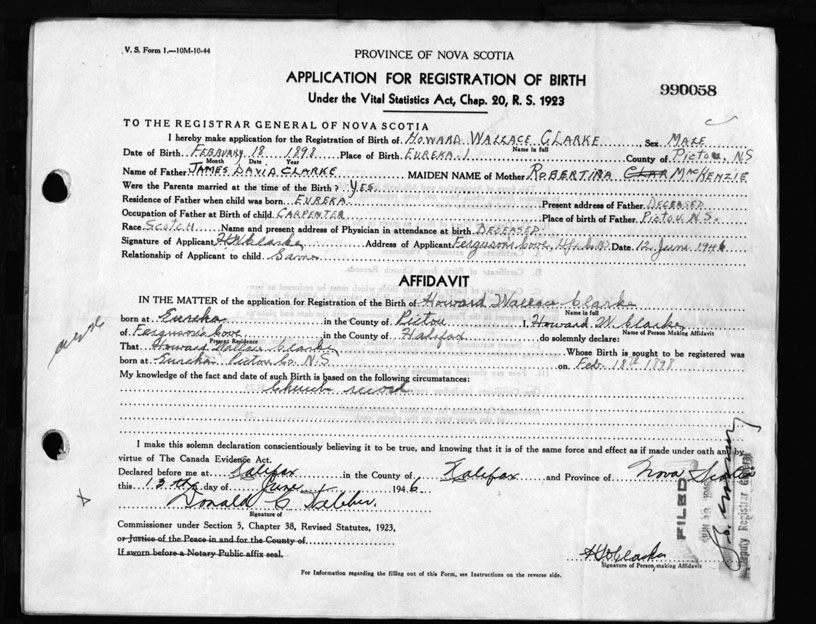 V. S. Form 1.—10M-10-44
PROVINCE OF NOVA SCOTIA
APPLICATION FOR REGISTRATION OF BIRTH
990058
Under the Vital Statistics Act, Chap. 20, R. S. 1923
TO THE REGISTRAR GENERAL OF NOVA SCOTIA
I hereby make application for the Registration of Birth of HOWARD WALLACE CLARKE Sex MALE
Name in full
Date of Birth FEBRUARY 18 1898 Place of Birth EUREKA County of PICTOU, NS
Month Date Year
Name of Father JAMES DAVID CLARKE MAIDEN NAME of Mother ROBERTINA CLAR MACKENZIE
Were the Parents married at the time of the Birth? YES
Residence of Father when child was born EUREKA Present address of Father DECEASED
Occupation of Father at Birth of child CARPENTER Place of birth of Father PICTOU N.S.
Race SCOTCH Name and present address of Physician in attendance at birth DECEASED
Signature of Applicant HWClarke Address of Applicant Fergusons Cove, Date 12 June 1946
Relationship of Applicant to child Same
AFFIDAVIT
IN THE MATTER of the application for Registration of the Birth of Howard Wallace Clarke
Name in full
born at Eureka in the County of Pictou I, Howard W. Clarke
Name of Person Making Affidavit
of Fergusons Cove in the County of Halifax do solemnly declare:
Present Residence
That Howard Wallace Clarke Whose Birth is sought to be registered was
born at Eureka Pictou Co. N.S. on Feb. 18th 1898
My knowledge of the fact and date of such Birth is based on the following circumstances:
Church record
I make this solemn declaration conscientiously believing it to be true, and knowing that it is of the same force and effect as if made under oath and by
virtue of The Canada Evidence Act.
Declared before me at Halifax in the County of Halifax and Province of Nova Scotia
this 13th day of June 1946.
Donald C
Signature of
Commissioner under Section 5, Chapter 38, Revised Statutes, 1923,
or Justice of the Peace in and for the County of
If sworn before a Notary Public affix seal.
HWClarke
Signature of Person making Affidavit
For Information regarding the filling out of this Form, see Instructions on the reverse side.
FILED
Deputy Registrar General